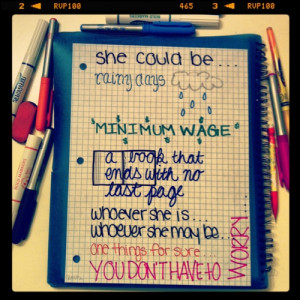 2 RVP100 465 3 RVP100
she could be...
rainy days
"MINIMUM WAGE"
a book that
ends with no
last page
whoever she is...
whoever she may be...
one things for sure...
YOU DON'T HAVE TO
WORRY